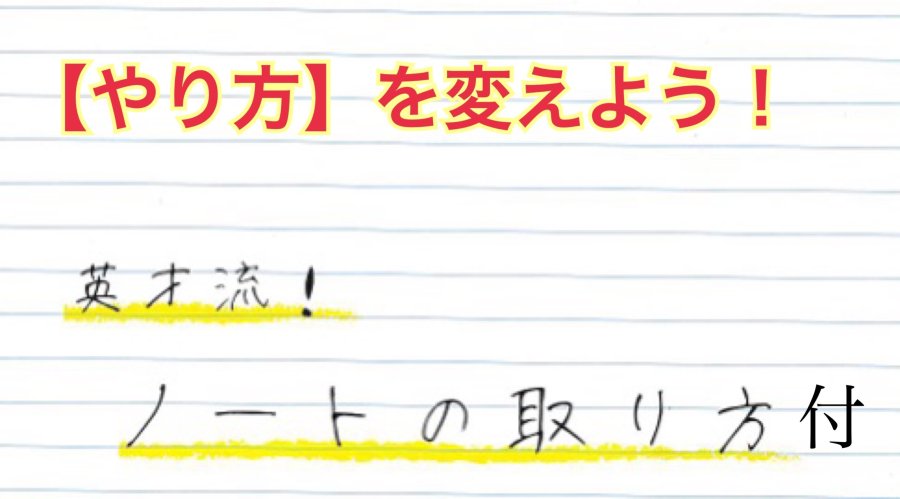 【やり方】を変えよう！
英才流！
ノートの取り方付